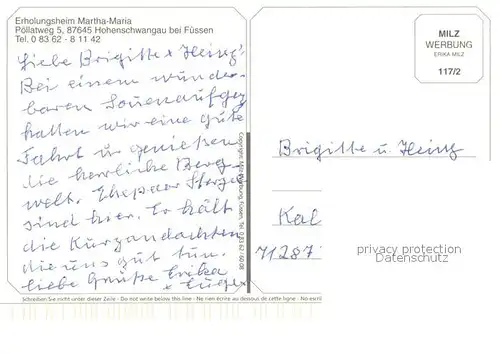 Erholungsheim Martha-Maria
Pöllatweg 5, 87645 Hohenschwangau bei Füssen
Tel. 0 83 62 - 8 11 42
Liebe Brigitte + Heinz!
Bei einem wunder-
baren Sonnenaufgang
hatten wir eine gute
Fahrt u. genießen
die herrliche Berg-
welt. Ehepaar
sind hier. Er hält
die Kurzandachten
die uns gut tun.
Liebe Grüße Erika
+ Eugen
Copyright: Milz-Werbung, Füssen, Tel. 0 83 62 / 60 08
Schreiben Sie nicht unter dieser Zeile - Do not write below this line - Ne rien écrire au dessous de cette ligne - Non scril
MILZ
WERBUNG
ERIKA MILZ
117/2
Brigitte u. Heinz
Kal
71287
privacy protection
Datenschutz